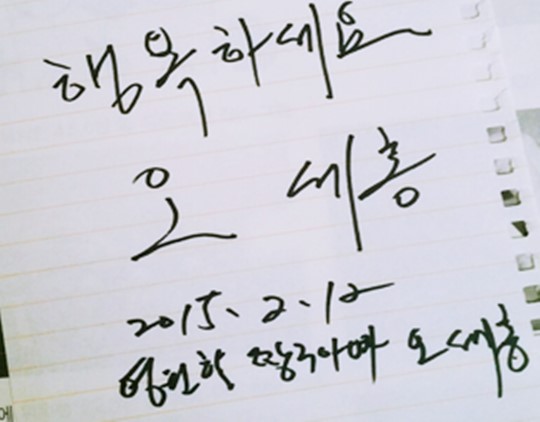 행복하세요
오 세홍
2015. 2. 12
영원한 짱구아빠 오세홍
에